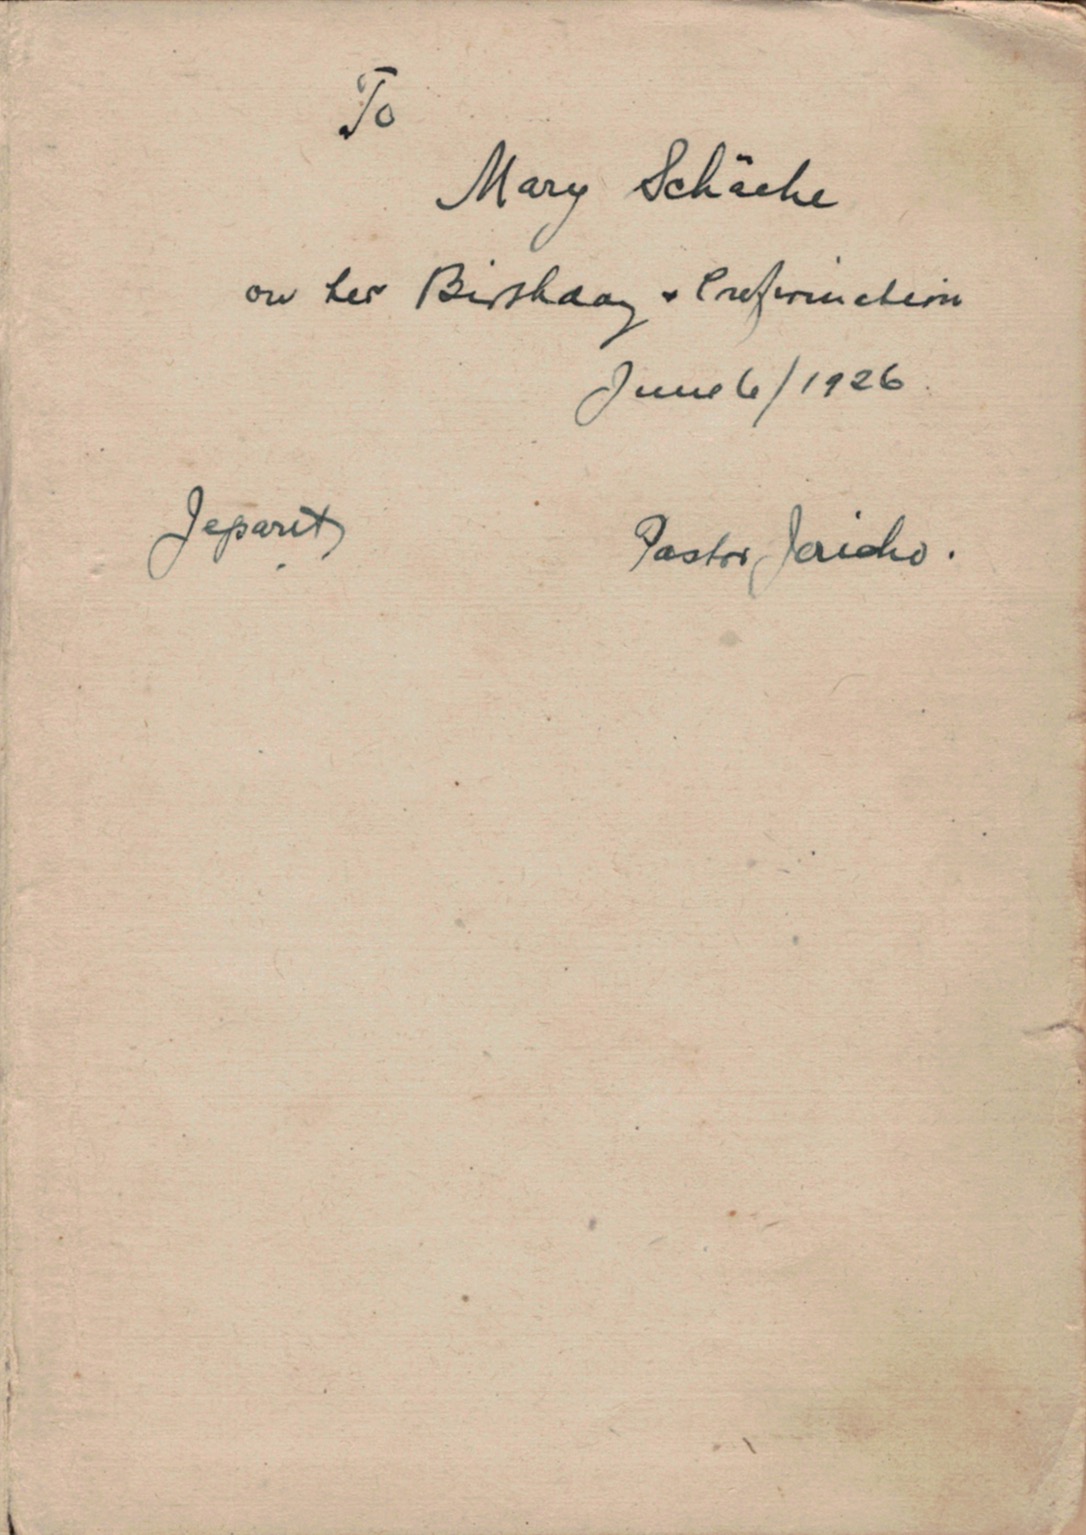 To
Mary Schäche
on her Birthday & Confirmation
June 6/1926.
Jeparit, Pastor Jericho.